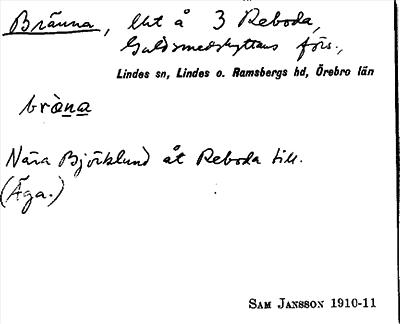 Bränna, Uxt å 3 Reboda,
Guldsmedshyttans förs.,
Lindes sn, Lindes o. Ramsbergs hd, Örebro län
bròna
Nära Björklund åt Reboda till.
(Äga.)
SAM JANSSON 1910-11